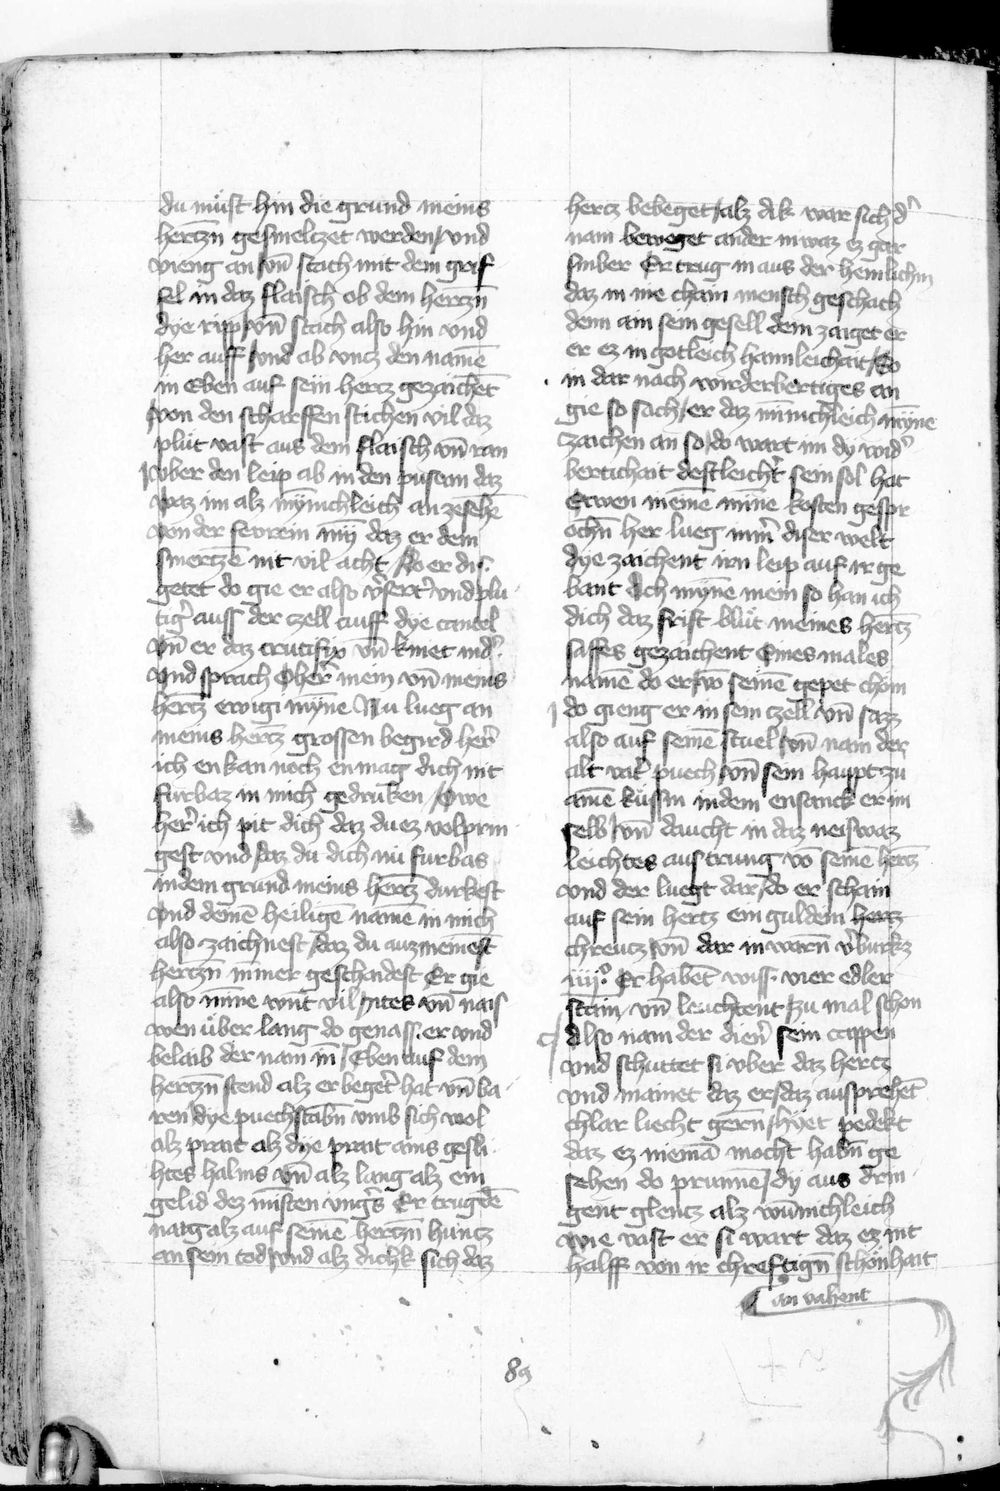 du müst hin die grund meins
hertzn gesmeltzet werden / vnd
vieng an / vn̄ stach mit dem grif
fel in daz flaisch ob dem hertzn̄
dye ripp / vn̄ stach also hin vnd
her auff / vnd ab vncz den namē
in Eben auf sein hertz gezaichet
von den scharffen stichen vil daz
plüt vast aus dem flaisch vn̄ ran
vber den leip ab in den pusem daz
waz im alz mÿnnichleich an zesehē
von der fewrein mÿ daz er dem
smertzē nit vil acht / Do er diꝰ
getet do gie er also vˢsertˢ vnd plu
tigˢ auss der czell auff dye cancel
vn̄ er daz crucifix vn̄ kniet indˢ
vnd sprach O herˢ mein vn̄ meins
hertz ewigi mÿne Nu lueg an
meins hertz grossen begird herˢ
ich enkan noch en mag dich nit
furbaz in mich gedruken / O we
herˢ ich pit dich daz du ez volprin
gest vnd / daz du dich nü furbas
in den grund meins hertz drukest
vnd deinē heiligē namē in mich
also zaichnest / daz du auz meinest
hertzn ni̅mer geschaidest Er gie
also mi̅ne vnt vil / ntes vn̄ nais
wen über lang do genass er vnd
belaib der nam in̄ / Eben auf dem
hertzn stend alz er begetˢ hat vn̄ ba
ren / dye puechstabn̄ vmb sich wol
alz prait alz dye prait ains gesli
htes halms vn̄ alz lang alz ein
gelid dez mi̅sten vingˢs Er trug dē
nam alz auf seinē hertzn huntz
an sein tod / vnd alz dichk sich daz
hertz bebeget / alz dik war sich dˢ
nam beweget ander in waz ez gar
sinber Er trug in aus der heimlichin
daz in nie chain mensch geschach
denn ain sein gesell dem zaiget er
er ez in gotleich haimleichait / So
in dar nach widerbertiges an
gie so sach / er daz mi̅nichleich mÿne
zaichen an so / do wart im dy widˢ
bertichait destleichtˢ sein sol hat
Etwen meinē mi̅ne kosten gespr
ochn̄ her lueg ni̅mˢ diser welt
dye zaichent irn leip auf ir ge
bant Ach mÿne mein so han ich
dich daz frist blüt meines hertz
saffes gezaichent Eines males
namē do er / vō seinē gepet chom
do gieng er in sein czell vn̄ sazz
also auf seinē stuel / vn̄ nam der
alt vatˢ puech / vn̄ sein haupt zu
ainē küssin in dem ensanck er im
selb / vn̄ daucht in daz neiswaz
leichtes austrung vō seinē hertz
vnd der luegt dar / do er schain
auf sein hertz ein guldein hertz
chreutz / vn̄ dar in warn̄ vˢburkz
iiij.º Er habet wiss. vier edler
stain / vn̄ leuchtent / zu mal schon
Also nam der dienˢ sein cappen
vnd schuttet si vber daz hertz
vnd mainet daz er / daz ausprehēt
chlar liecht gern̄ / hyet pedekt
daz ez niemā mocht habn̄ ge
sehen do prunnē / dy aus drin
gent glentz alz wu̅nichleich
wie vast er si wart daz ez nit
halff von ir chreftign̄ schonhait
on vahent
89